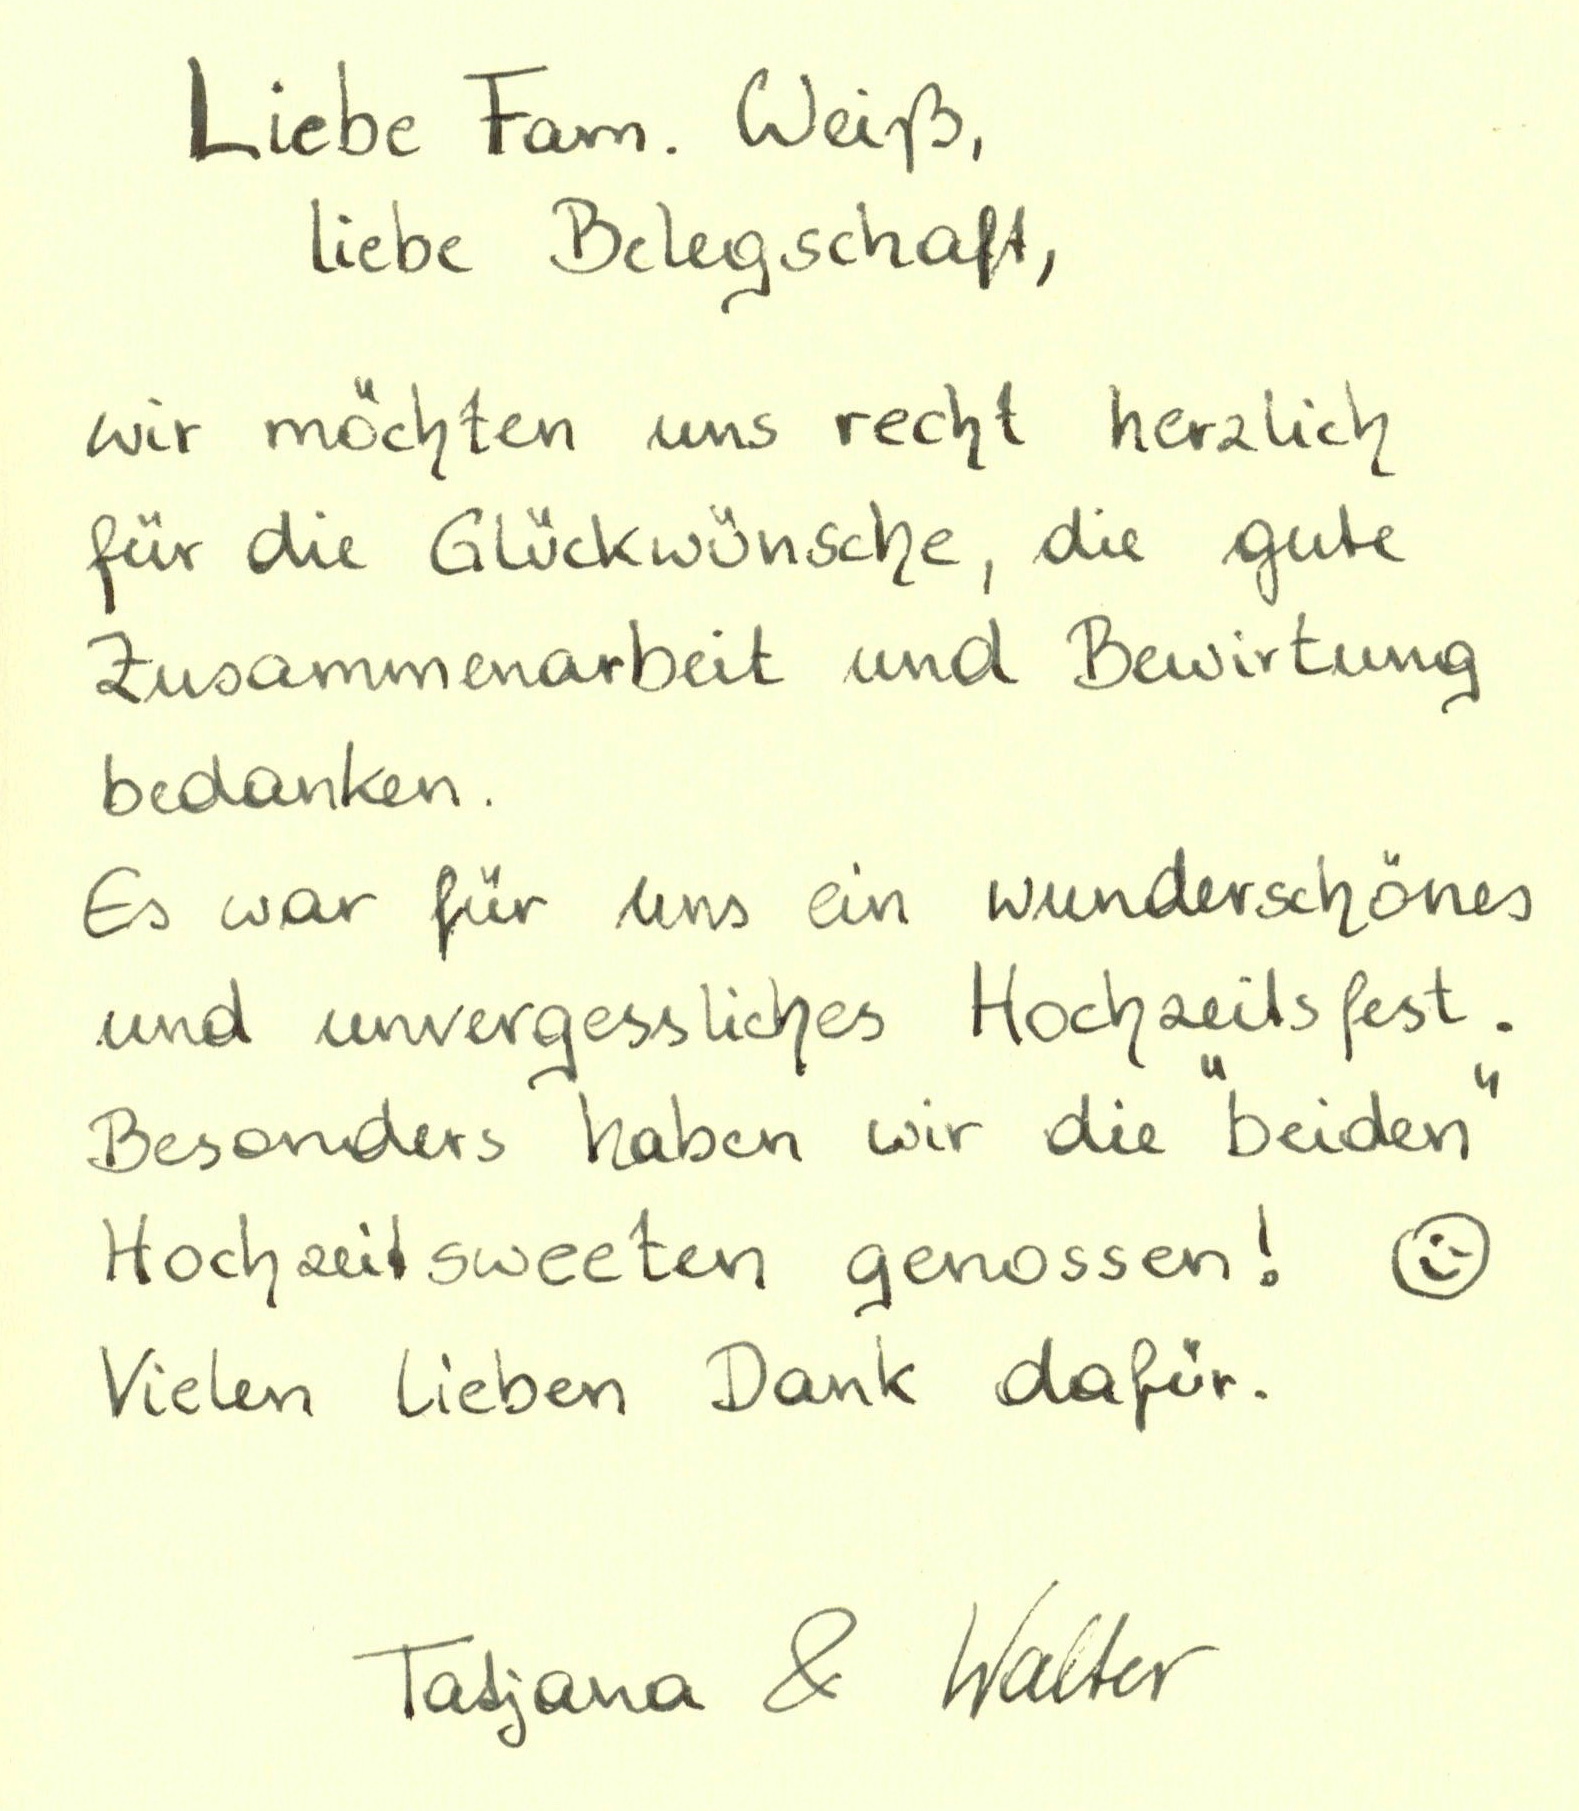 Liebe Fam. Weiß,
liebe Belegschaft,
wir möchten uns recht herzlich
für die Glückwünsche, die gute
Zusammenarbeit und Bewirtung
bedanken.
Es war für uns ein wunderschönes
und unvergessliches Hochzeitsfest.
Besonders haben wir die "beiden"
Hochzeitsweeten genossen! ☺
Vielen lieben Dank dafür.
Tatjana & Walter